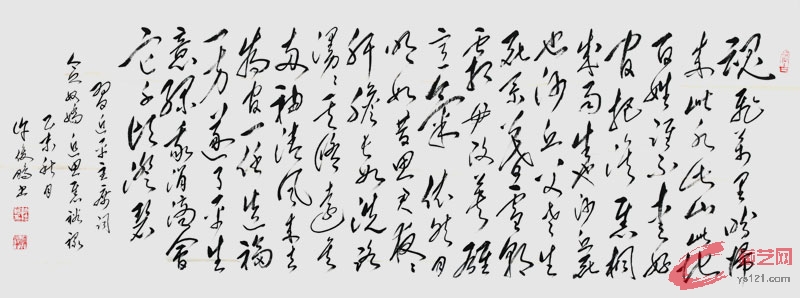 魂飛萬里盼歸
來此水此山此地
百姓誰不愛好
官把淚焦桐
成雨生也沙丘死
也沙丘父老生
死系暮雪朝
霜毋改英雄
意氣依然月
明如昔思君夜〻
肝膽長如洗路
漫〻其修遠矣
兩袖清風來去
為官一任造福
一方遂了平生
意綠我涓滴會
它千頃澄碧
習近平主席詞
念奴嬌追思焦裕祿
乙未秋月
許俊書
艺网
ys121.com